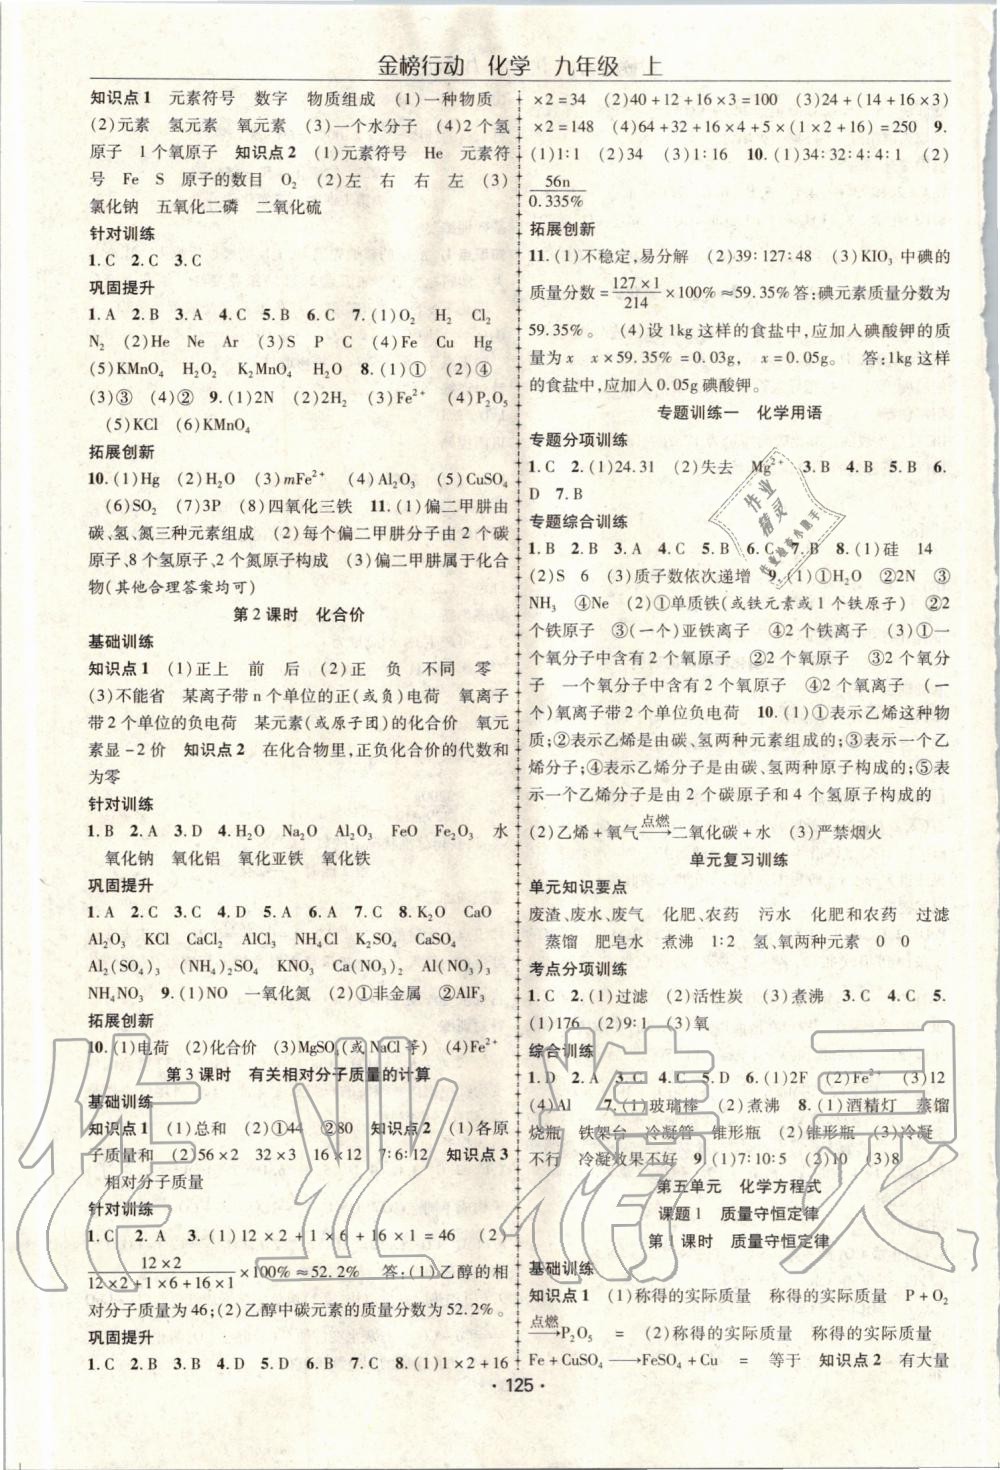 金榜行动 化学 九年级 上
知识点1 元素符号 数字 物质组成 (1)一种物质
(2)元素 氢元素 氧元素 (3)一个水分子 (4)2个氢
原子 1个氧原子 知识点2 (1)元素符号 He 元素符
号 Fe S 原子的数目 O₂ (2)左 右 右 左 (3)
氯化钠 五氧化二磷 二氧化硫
针对训练
1.C 2.C 3.C
巩固提升
1.A 2.B 3.A 4.C 5.B 6.C 7.(1)O₂ H₂ Cl₂
N₂ (2)He Ne Ar (3)S P C (4)Fe Cu Hg
(5)KMnO₄ H₂O₂ K₂MnO₄ H₂O 8.(1)① (2)④
(3)③ (4)② 9.(1)2N (2)2H₂ (3)Fe²⁺ (4)P₂O₅
(5)KCl (6)KMnO₄
拓展创新
10.(1)Hg (2)H₂O (3)mFe²⁺ (4)Al₂O₃ (5)CuSO₄
(6)SO₂ (7)3P (8)四氧化三铁 11.(1)偏二甲肼由
碳、氢、氮三种元素组成 (2)每个偏二甲肼分子由2个碳
原子、8个氢原子、2个氮原子构成 (3)偏二甲肼属于化合
物(其他合理答案均可)
第2课时 化合价
基础训练
知识点1 (1)正上 前 后 (2)正 负 不同 零
(3)不能省 某离子带n个单位的正(或负)电荷 氧离子
带2个单位的负电荷 某元素(或原子团)的化合价 氧元
素显-2价 知识点2 在化合物里,正负化合价的代数和
为零
针对训练
1.B 2.A 3.D 4.H₂O Na₂O Al₂O₃ FeO Fe₂O₃ 水
氧化钠 氧化铝 氧化亚铁 氧化铁
巩固提升
1.A 2.C 3.C 4.D 5.A 6.A 7.C 8.K₂O CaO
Al₂O₃ KCl CaCl₂ AlCl₃ NH₄Cl K₂SO₄ CaSO₄
Al₂(SO₄)₃ (NH₄)₂SO₄ KNO₃ Ca(NO₃)₂ Al(NO₃)₃
NH₄NO₃ 9.(1)NO 一氧化氮 (2)①非金属 ②AlF₃
拓展创新
10.(1)电荷 (2)化合价 (3)MgSO₄(或NaCl等) (4)Fe²⁺
第3课时 有关相对分子质量的计算
基础训练
知识点1 (1)总和 (2)①44 ②80 知识点2 (1)各原
子质量和 (2)56×2 32×3 16×12 7∶6∶12 知识点3
相对分子质量
针对训练
1.C 2.A 3.(1)12×2+1×6+16×1=46 (2)
12×2/(12×2+1×6+16×1)×100%≈52.2% 答:(1)乙醇的相
对分子质量为46;(2)乙醇中碳元素的质量分数为52.2%。
巩固提升
1.C 2.B 3.B 4.C 5.D 6.B 7.C 8.(1)1×2+16
×2=34 (2)40+12+16×3=100 (3)24+(14+16×3)
×2=148 (4)64+32+16×4+5×(1×2+16)=250 9.
(1)1∶1 (2)34 (3)1∶16 10.(1)34∶32∶4∶4∶1 (2)
56n/0.335%
拓展创新
11.(1)不稳定,易分解 (2)39∶127∶48 (3)KIO₃中碘的
质量分数=127×1/214×100%≈59.35%答:碘元素质量分数为
59.35%。 (4)设1kg这样的食盐中,应加入碘酸钾的质
量为x x×59.35%=0.03g, x=0.05g。 答:1kg这样
的食盐中,应加入0.05g碘酸钾。
专题训练一 化学用语
专题分项训练
1.C 2.(1)24.31 (2)失去 Mg²⁺ 3.B 4.B 5.B 6.
D 7.B
专题综合训练
1.B 2.B 3.A 4.C 5.B 6.C 7.B 8.(1)硅 14
(2)S 6 (3)质子数依次递增 9.(1)①H₂O ②2N ③
NH₃ ④Ne (2)①单质铁(或铁元素或1个铁原子) ②2
个铁原子 ③(一个)亚铁离子 ④2个铁离子 (3)①一
个氧分子中含有2个氧原子 ②2个氧原子 ③2个氧分
子 一个氧分子中含有2个氧原子 ④2个氧离子 (一
个)氧离子带2个单位负电荷 10.(1)①表示乙烯这种物
质;②表示乙烯是由碳、氢两种元素组成的;③表示一个乙
烯分子;④表示乙烯分子是由碳、氢两种原子构成的;⑤表
示一个乙烯分子是由2个碳原子和4个氢原子构成的
(2)乙烯+氧气 点燃→ 二氧化碳+水 (3)严禁烟火
单元复习训练
单元知识要点
废渣、废水、废气 化肥、农药 污水 化肥和农药 过滤
蒸馏 肥皂水 煮沸 1∶2 氢、氧两种元素 0 0
考点分项训练
1.C 2.(1)过滤 (2)活性炭 (3)煮沸 3.C 4.C 5.
(1)176 (2)9∶1 (3)氧
综合训练
1.D 2.A 3.C 4.C 5.D 6.(1)2F (2)Fe²⁺ (3)12
(4)Al 7.(1)玻璃棒 (2)煮沸 8.(1)酒精灯 蒸馏
烧瓶 铁架台 冷凝管 锥形瓶 (2)锥形瓶 (3)冷凝
不行 冷凝效果不好 9.(1)7∶10∶5 (2)10 (3)8
第五单元 化学方程式
课题1 质量守恒定律
第1课时 质量守恒定律
基础训练
知识点1 (1)称得的实际质量 称得的实际质量 P+O₂
点燃→P₂O₅ = (2)称得的实际质量 称得的实际质量
Fe+CuSO₄→FeSO₄+Cu = 等于 知识点2 有大量
·125·
作业精灵
作业精灵